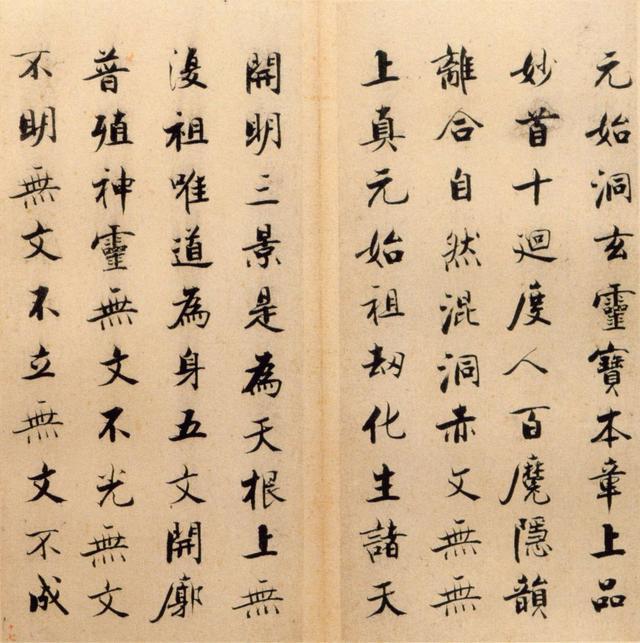 元始洞玄靈寶本章上品
妙首十廻度人百魔隱韻
離合自然混洞赤文無無
上真元始祖劫化生諸天
開明三景是為天根上無
澓祖唯道為身五文開廓
普殖神靈無文不光無文
不明無文不立無文不成